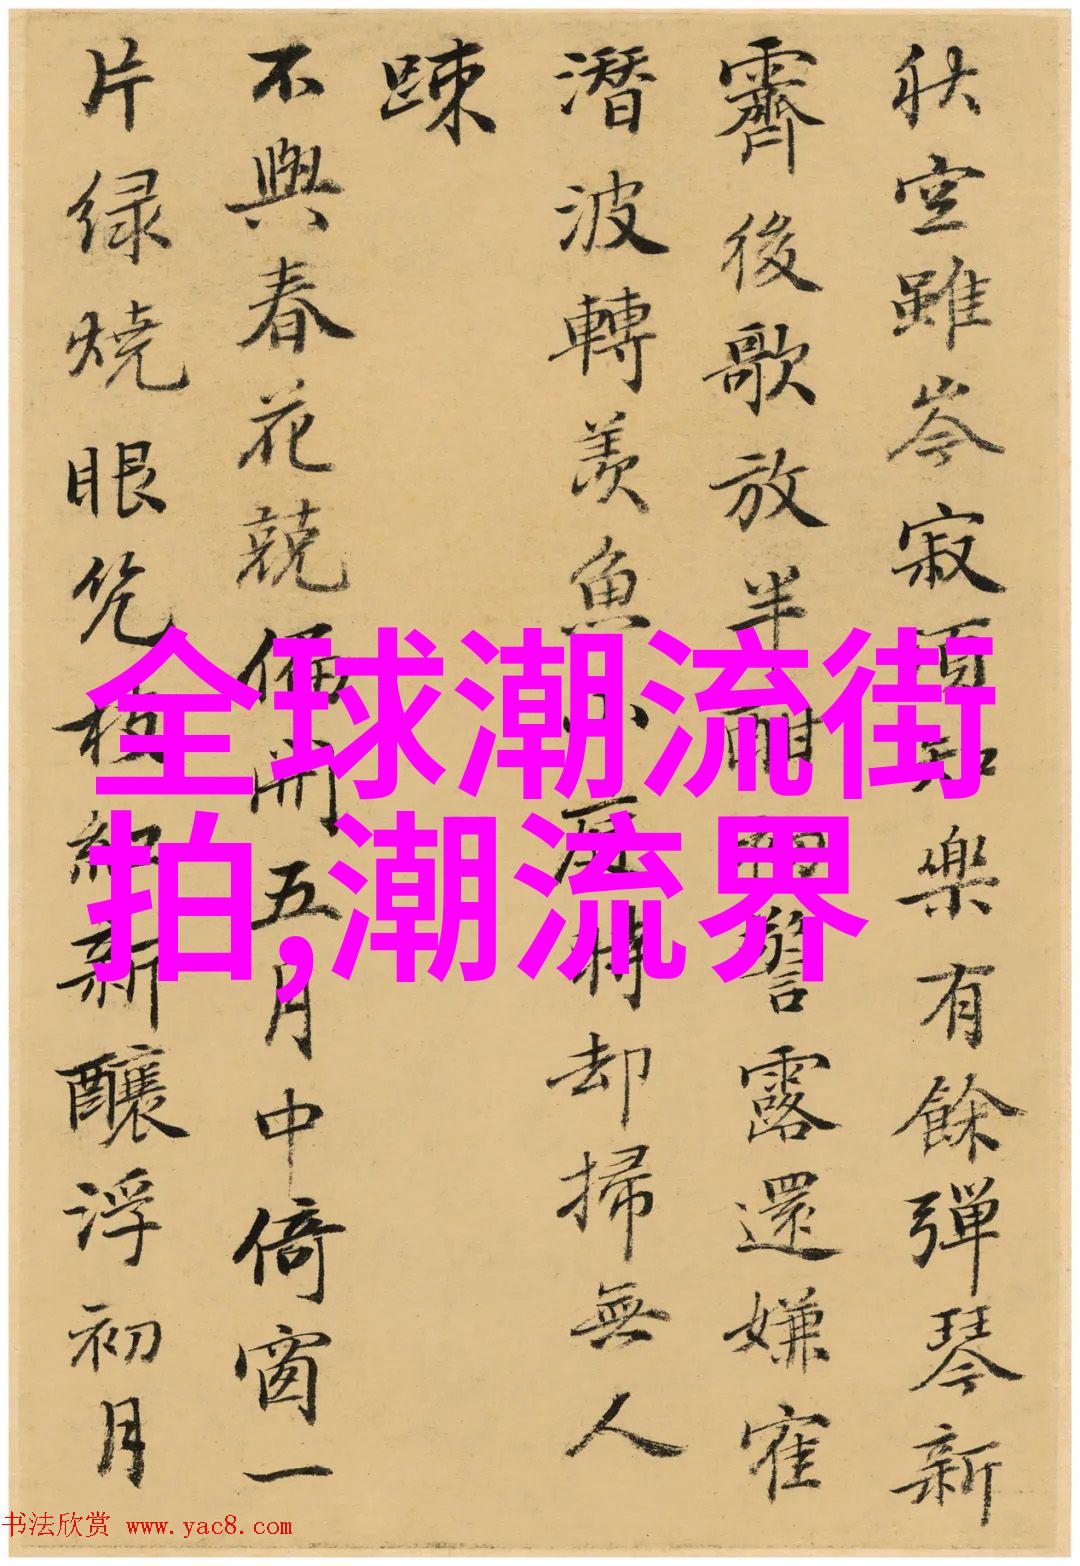 秋空雖岑寂知樂有餘彈琴新
霽後歌放半酣初警露還嫌寉
潛波轉羨魚小將却掃無人
踈
不與春花競開五月中倚窗一
片緑燒眼枝紅新釀浮初月
全球潮流街
拍,潮流界
书法欣赏 www.yac8.com